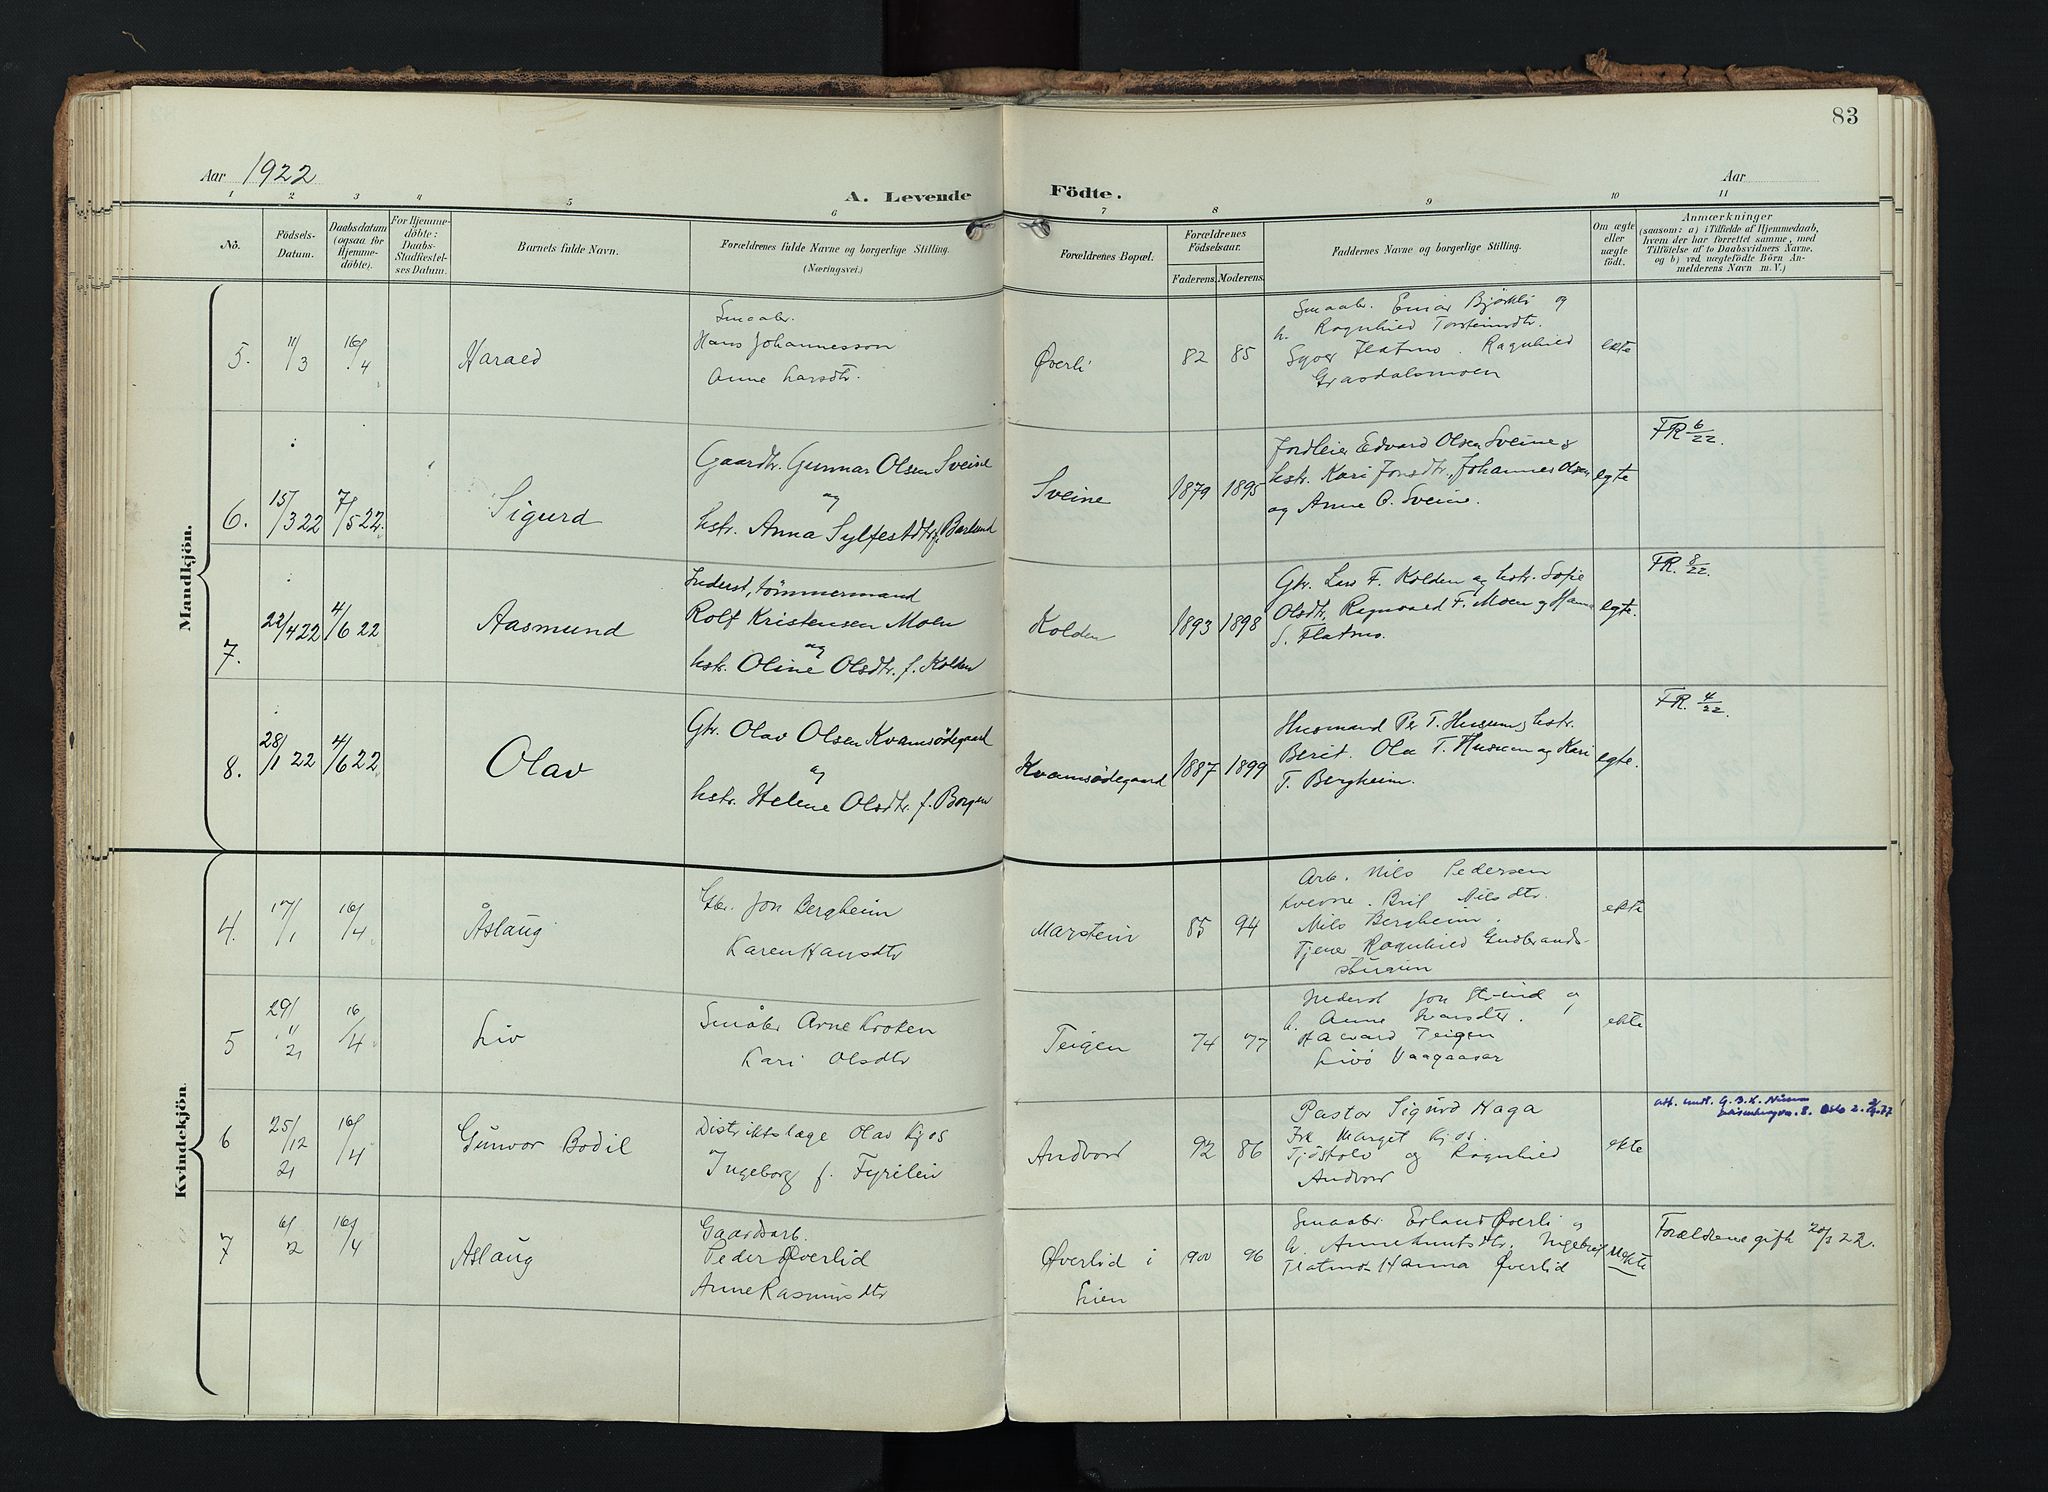 83
Aar 1922
A. Levende Födte.
Aar
1 2 3 4 5 6 7 8 9 10 11
No.
Födsels-Datum.
Daabsdatum (ogsaa for Hjemme-döbte).
For Hjemme-döbte: Daabs-Stadfæstel-ses Datum.
Barnets fulde Navn.
Forældrenes fulde Navne og borgerlige Stilling.
(Næringsvei.)
Forældrenes Bopæl.
Forældrenes Födselsaar.
Faderens. Moderens.
Faddernes Navne og borgerlige Stilling.
Om ægte eller uægte födt.
Anmærkninger
(saasom: a) i Tilfælde af Hjemmedaab, hvem der har forrettet samme, med Tilföielse af to Daabsvidners Navne. og b) ved uægtefödte Börn An-melderens Navn m. V.)
Mandkjön.
5. 11/3 16/4 Harald
Smaabr.
Hans Johannesson
Anne Larsdtr.
Øverli 82 85
Smaabr. Einar Bjørkli og
h. Ragnhild Torsteinsdtr.
Flatmo. Ragnhild
Grasdalsmoen
ekte
6. 15/3 22 7/5 22. Sigurd
Gaardbr. Gunnar Olsen Sveine
og
hstr. Anna Sylfestdtr f. Barlund
Sveine 1879 1895
Jordleier Edvard Olsen Sveine &
hstr. Kari Jonsdtr, Johannes Olsen
og Anne O. Sveine.
egte
FR 6/22.
7. 22/4 22 4/6 22 Aasmund
Inderst, tömmermand
Rolf Kristensen Moen
og
hstr. Oline Olsdtr. f. Kolden
Kolden 1893 1898
Gbr. Lars F. Kolden og hstr. Sofie
Olsdtr, Ragnvald F. Moen og Hanna
S. Flatmo.
egte.
FR. 8/22.
8. 28/1 22 4/6 22 Olav
Gbr. Olav Olsen Kvamsödegaard
og
hstr. Helene Olsdtr. f. Borgen
Kvamsödegaard 1887 1899
Husmand Per T. Husum & hstr.
Berit. Ola T. Husum og Kari
T. Bergheim.
egte.
FR. 4/22.
Kvindekjön.
4. 17/1 16/4 Åslaug
Gbr. Jon Bergheim
Karen Hansdtr
Marstein 85 94
Arb. Nils Pedersen
Kvevne. Brit Nilsdtr.
Nils Bergheim.
Tjener Ragnhild Gudbrands-
ekte
5 29/11 21 16/4 Liv
Småbr Arne Kroken
Kari Olsdtr
Teigen 74 77
Inderst Jon Strind og
h. Anne Larsdtr.
Haavard Teigen
Livö Vaagaasar
ekte
6 25/12 21 16/4 Gunvor Bodil
Distriktslæge Olav Kjos
Ingeborg f. Fyrileiv
Andvord 92 86
Pastor Sigurd Haga
Frk Marget Kjos.
Tjøstolv og Ragnhild
Andvord
ekte
7 6/2 16/4 Aslaug
Gaardsarb.
Peder Øverlid
Anne Rasmusdtr
Øverlid i
Lien
900 96
Smaabr. Erland Øverli og
h. Anne Knutsdtr. Ingebrigt
Flatmo Hanna Øverlid
uekte
Forældrene gift 20/3 22.